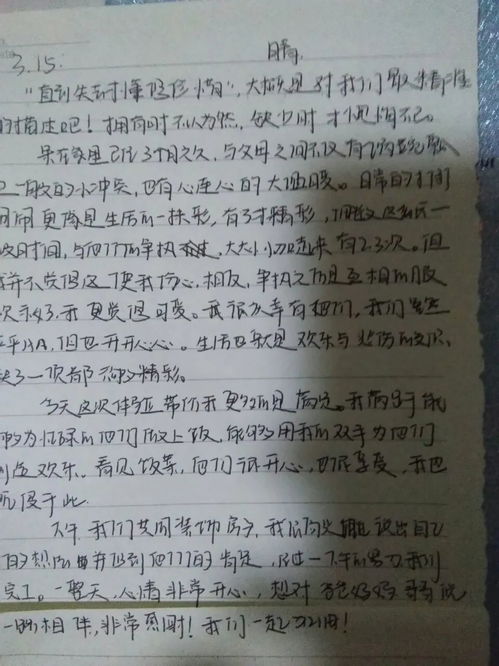 3.15. 晴.
"直到失去才懂得珍惜", 大概是对我们最精准
的描述吧！拥有时不以为然，缺少时才懊悔不已。
呆在家里已近3个月之久，与父母之间不仅有
一般的小冲突，也有心连心的大温暖。日常的
更像是生活的一抹彩，有了才精彩，
段时间，与他们的争执，大大小小加起来有2.3次。但
我并不觉得这了使我伤心，相反，争执之后互相的服
次示好，我更觉得可爱。我很庆幸有他们，我们虽然
平凡，但也开开心心。生活也就是欢乐与悲伤的交織、
缺了一次都不够精彩。
今天这次体验带给我更多的是满足。我满足于能
够为忙碌的他们做上饭，能够用我的双手为他们
创造欢乐。看见饭菜，他们很开心，也很享受，我也
沉浸于此.
下午，我们共同装饰房子，我
的想法并得到他们的肯定，经过一下午的努力我们
完工。一整天，心情非常开心，想对爸爸妈妈哥哥说
一路相伴，非常感谢！我们一起加油！